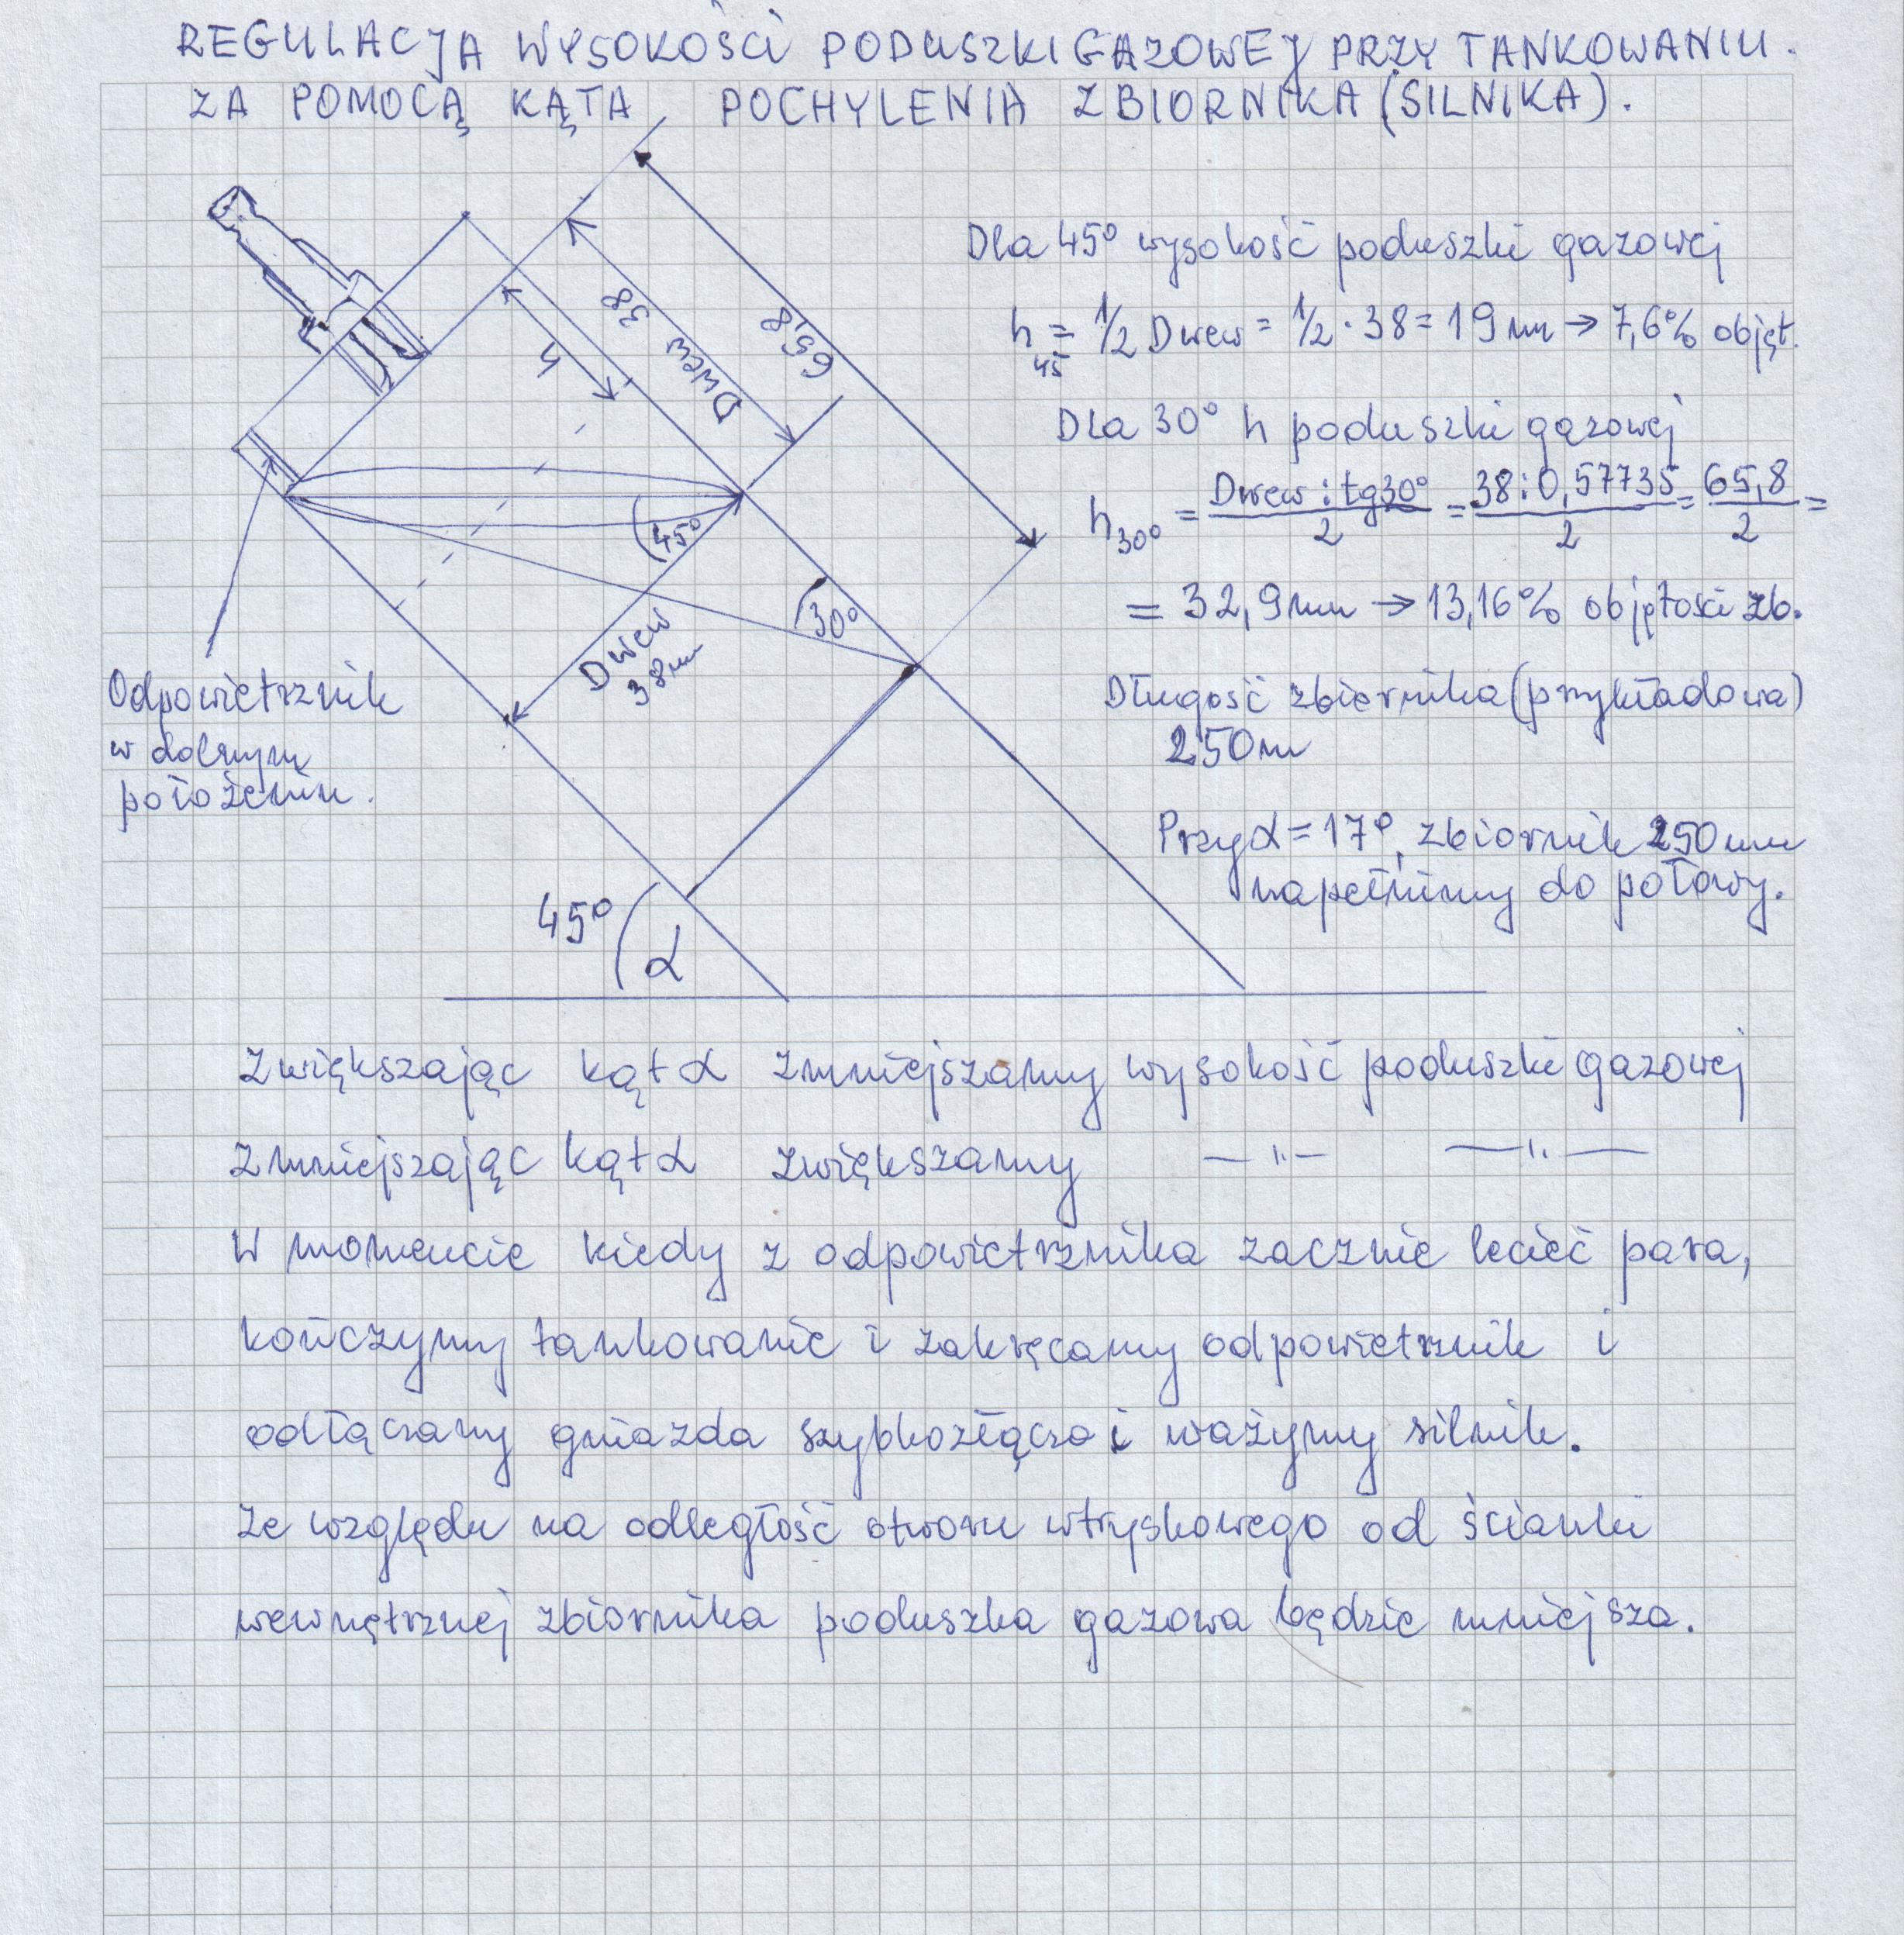 REGULACJA WYSOKOŚCI PODUSZKI GAZOWEJ PRZY TANKOWANIU.
ZA POMOCĄ KĄTA POCHYLENIA ZBIORNIKA (SILNIKA).
Dla 45° wysokość poduszki gazowej
h45 = 1/2 Dwew = 1/2 · 38 = 19 mm → 7,6% objęt.
Dla 30° h poduszki gązowej
h30° = Dwew : tg30° / 2 = 38 : 0,57735 / 2 = 65,8 / 2 =
= 32,9 mm → 13,16% objętości zb.
Długość zbiornika (przykładowa)
250 m
Przy α = 17°, zbiornik 250 mm
napełnimy do połowy.
65,8
38
Dwew
h
45°
30°
Dwew
38 mm
Odpowietrznik
w dolnym
położeniu.
45°
α
Zwiększając kąt α zmniejszamy wysokość poduszki gazowej
Zmniejszając kąt α zwiększamy —〃— —〃—
W momencie kiedy z odpowietrznika zacznie lecieć para,
kończymy tankowanie i zakręcamy odpowietrznik i
odłączamy gniazda szybkozłącza i ważymy silnik.
Ze względu na odległość otworu wtryskowego od ścianki
wewnętrznej zbiornika poduszka gazowa będzie mniejsza.